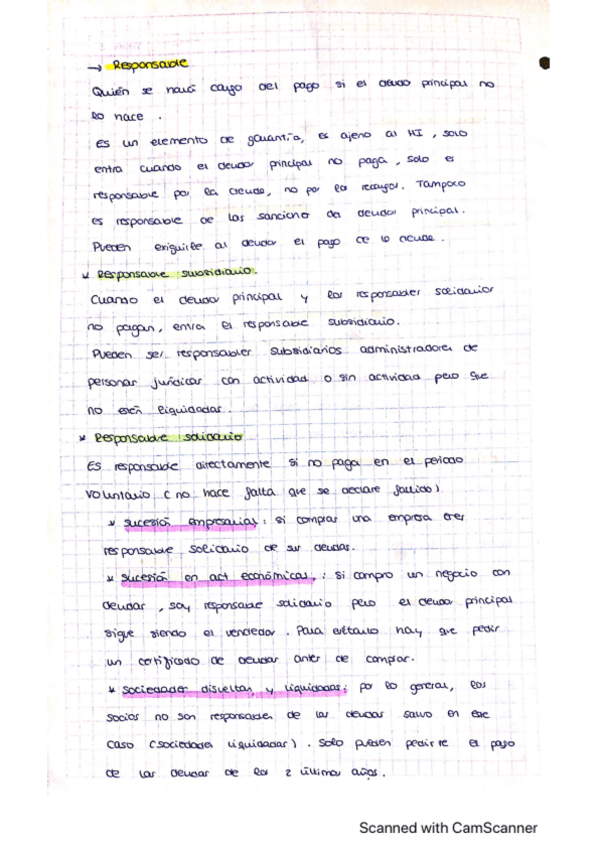 → Responsable
Quién se hará cargo del pago si el deudo principal no
lo hace .
Es un elemento de garantía, es ajeno al HI , solo
entra cuando el deudor principal no paga , solo es
responsable por la deuda, no por los recargos. Tampoco
es responsable de las sanciono del deudor principal.
Pueden exiguirle al deudor el pago de lo deude .
* Responsable subsidiario.
Cuando el deudor principal y los responsables solidarios
no pagan, entra el responsable subsidiario.
Pueden ser responsables subsidiarios administradores de
personas jurídicas con actividad o sin actividad pero que
no estén liquidadas.
* Responsable solidario
Es responsable directamente si no paga en el periodo
voluntario (no hace falta que se declare fallido)
* sucesión empresarial : si compras una empresa eres
responsable solidario de sus deudas.
* sucesión en act económicas, : si compro un negocio con
deudas , soy responsable solidario pero el deudor principal
sigue siendo el vendedor . Para evitarlo hay que pedir
un certificado de deudas antes de comprar.
* sociedades disueltas y liquidadas; por lo general, los
socios no son responsables de las deudas salvo en ese
caso (sociedades liquidadas) . Solo pueden pedirte el pago
de las deudas de los 2 últimos años.
Scanned with CamScanner